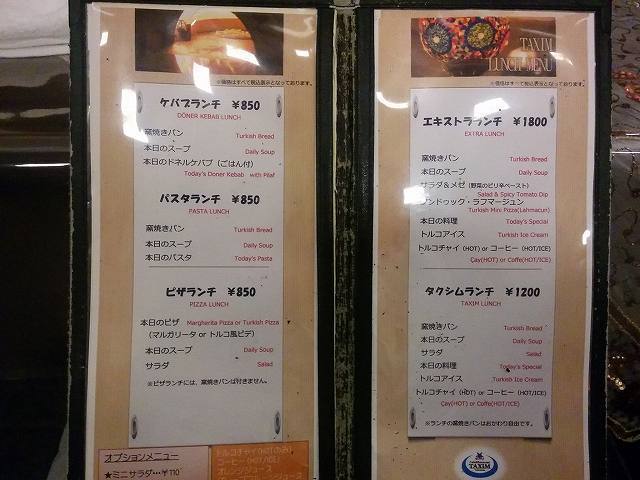 ※価格はすべて税込表示となっております。
ケバブランチ ¥850
DÖNER KEBAB LUNCH
窯焼きパン Turkish Bread
本日のスープ Daily Soup
本日のドネルケバブ（ごはん付）
Today's Doner Kebab with Pilaf
パスタランチ ¥850
PASTA LUNCH
窯焼きパン Turkish Bread
本日のスープ Daily Soup
本日のパスタ Today's Pasta
ピザランチ ¥850
PIZZA LUNCH
本日のピザ Margherita Pizza or Turkish Pizza
（マルガリータ or トルコ風ピデ）
本日のスープ Daily Soup
サラダ Salad
※ピザランチには、窯焼きパンは付きません。
オプションメニュー
★ミニサラダ…¥110
トルコチャイ(HOTのみ)
コーヒー(HOT/ICE)
オレンジジュース
TAXIM
LUNCH MENU
※価格はすべて税込表示となっております。
エキストララランチ ¥1800
EXTRA LUNCH
窯焼きパン Turkish Bread
本日のスープ Daily Soup
サラダ＆メゼ（野菜のピリ辛ペースト）
Salad & Spicy Tomato Dip
フンドゥック・ラフマージュン
Turkish Mini Pizza(Lahmacun)
本日の料理 Today's Special
トルコアイス Turkish Ice Cream
トルコチャイ（HOT）or コーヒー（HOT/ICE）
Çay(HOT) or Coffe(HOT/ICE)
タクシムランチ ¥1200
TAXIM LUNCH
窯焼きパン Turkish Bread
本日のスープ Daily Soup
サラダ Salad
本日の料理 Today's Special
トルコアイス Turkish Ice Cream
トルコチャイ（HOT）or コーヒー（HOT/ICE）
Çay(HOT) or Coffe(HOT/ICE)
※ランチの窯焼きパンはおかわり自由です。
TAXIM